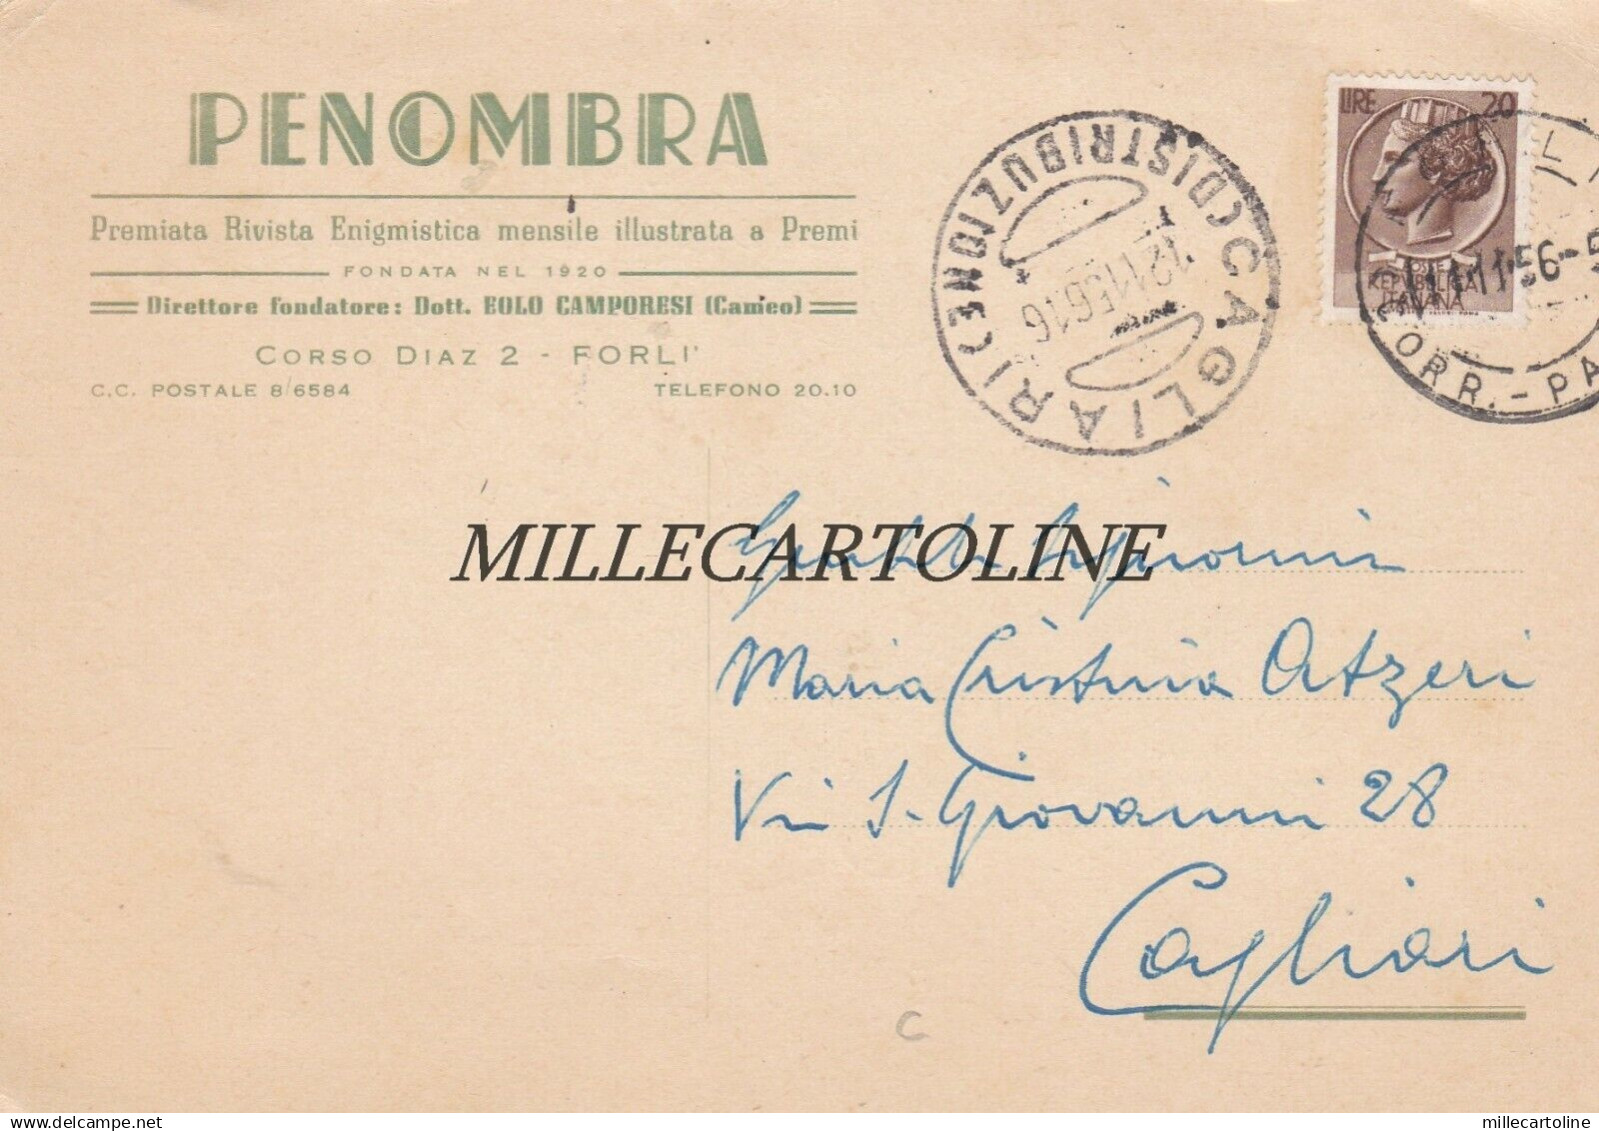 PENOMBRA
Premiata Rivista Enigmistica mensile illustrata a Premi
FONDATA NEL 1920
Direttore fondatore: Dott. EOLO CAMPORESI (Cameo)
CORSO DIAZ 2 - FORLI'
C.C. POSTALE 8/6584 TELEFONO 20.10
CAGLIARI (CENTRO DISTRIBUZIONE)
12 11 56 16
LIRE 20
POSTE
REPVBBLICA
ITALIANA
11.11.56-5
CORR.-PA
MILLECARTOLINE
Signorina
Maria Cristina Atzeri
Via S. Giovanni 28
Cagliari
C
millecartoline